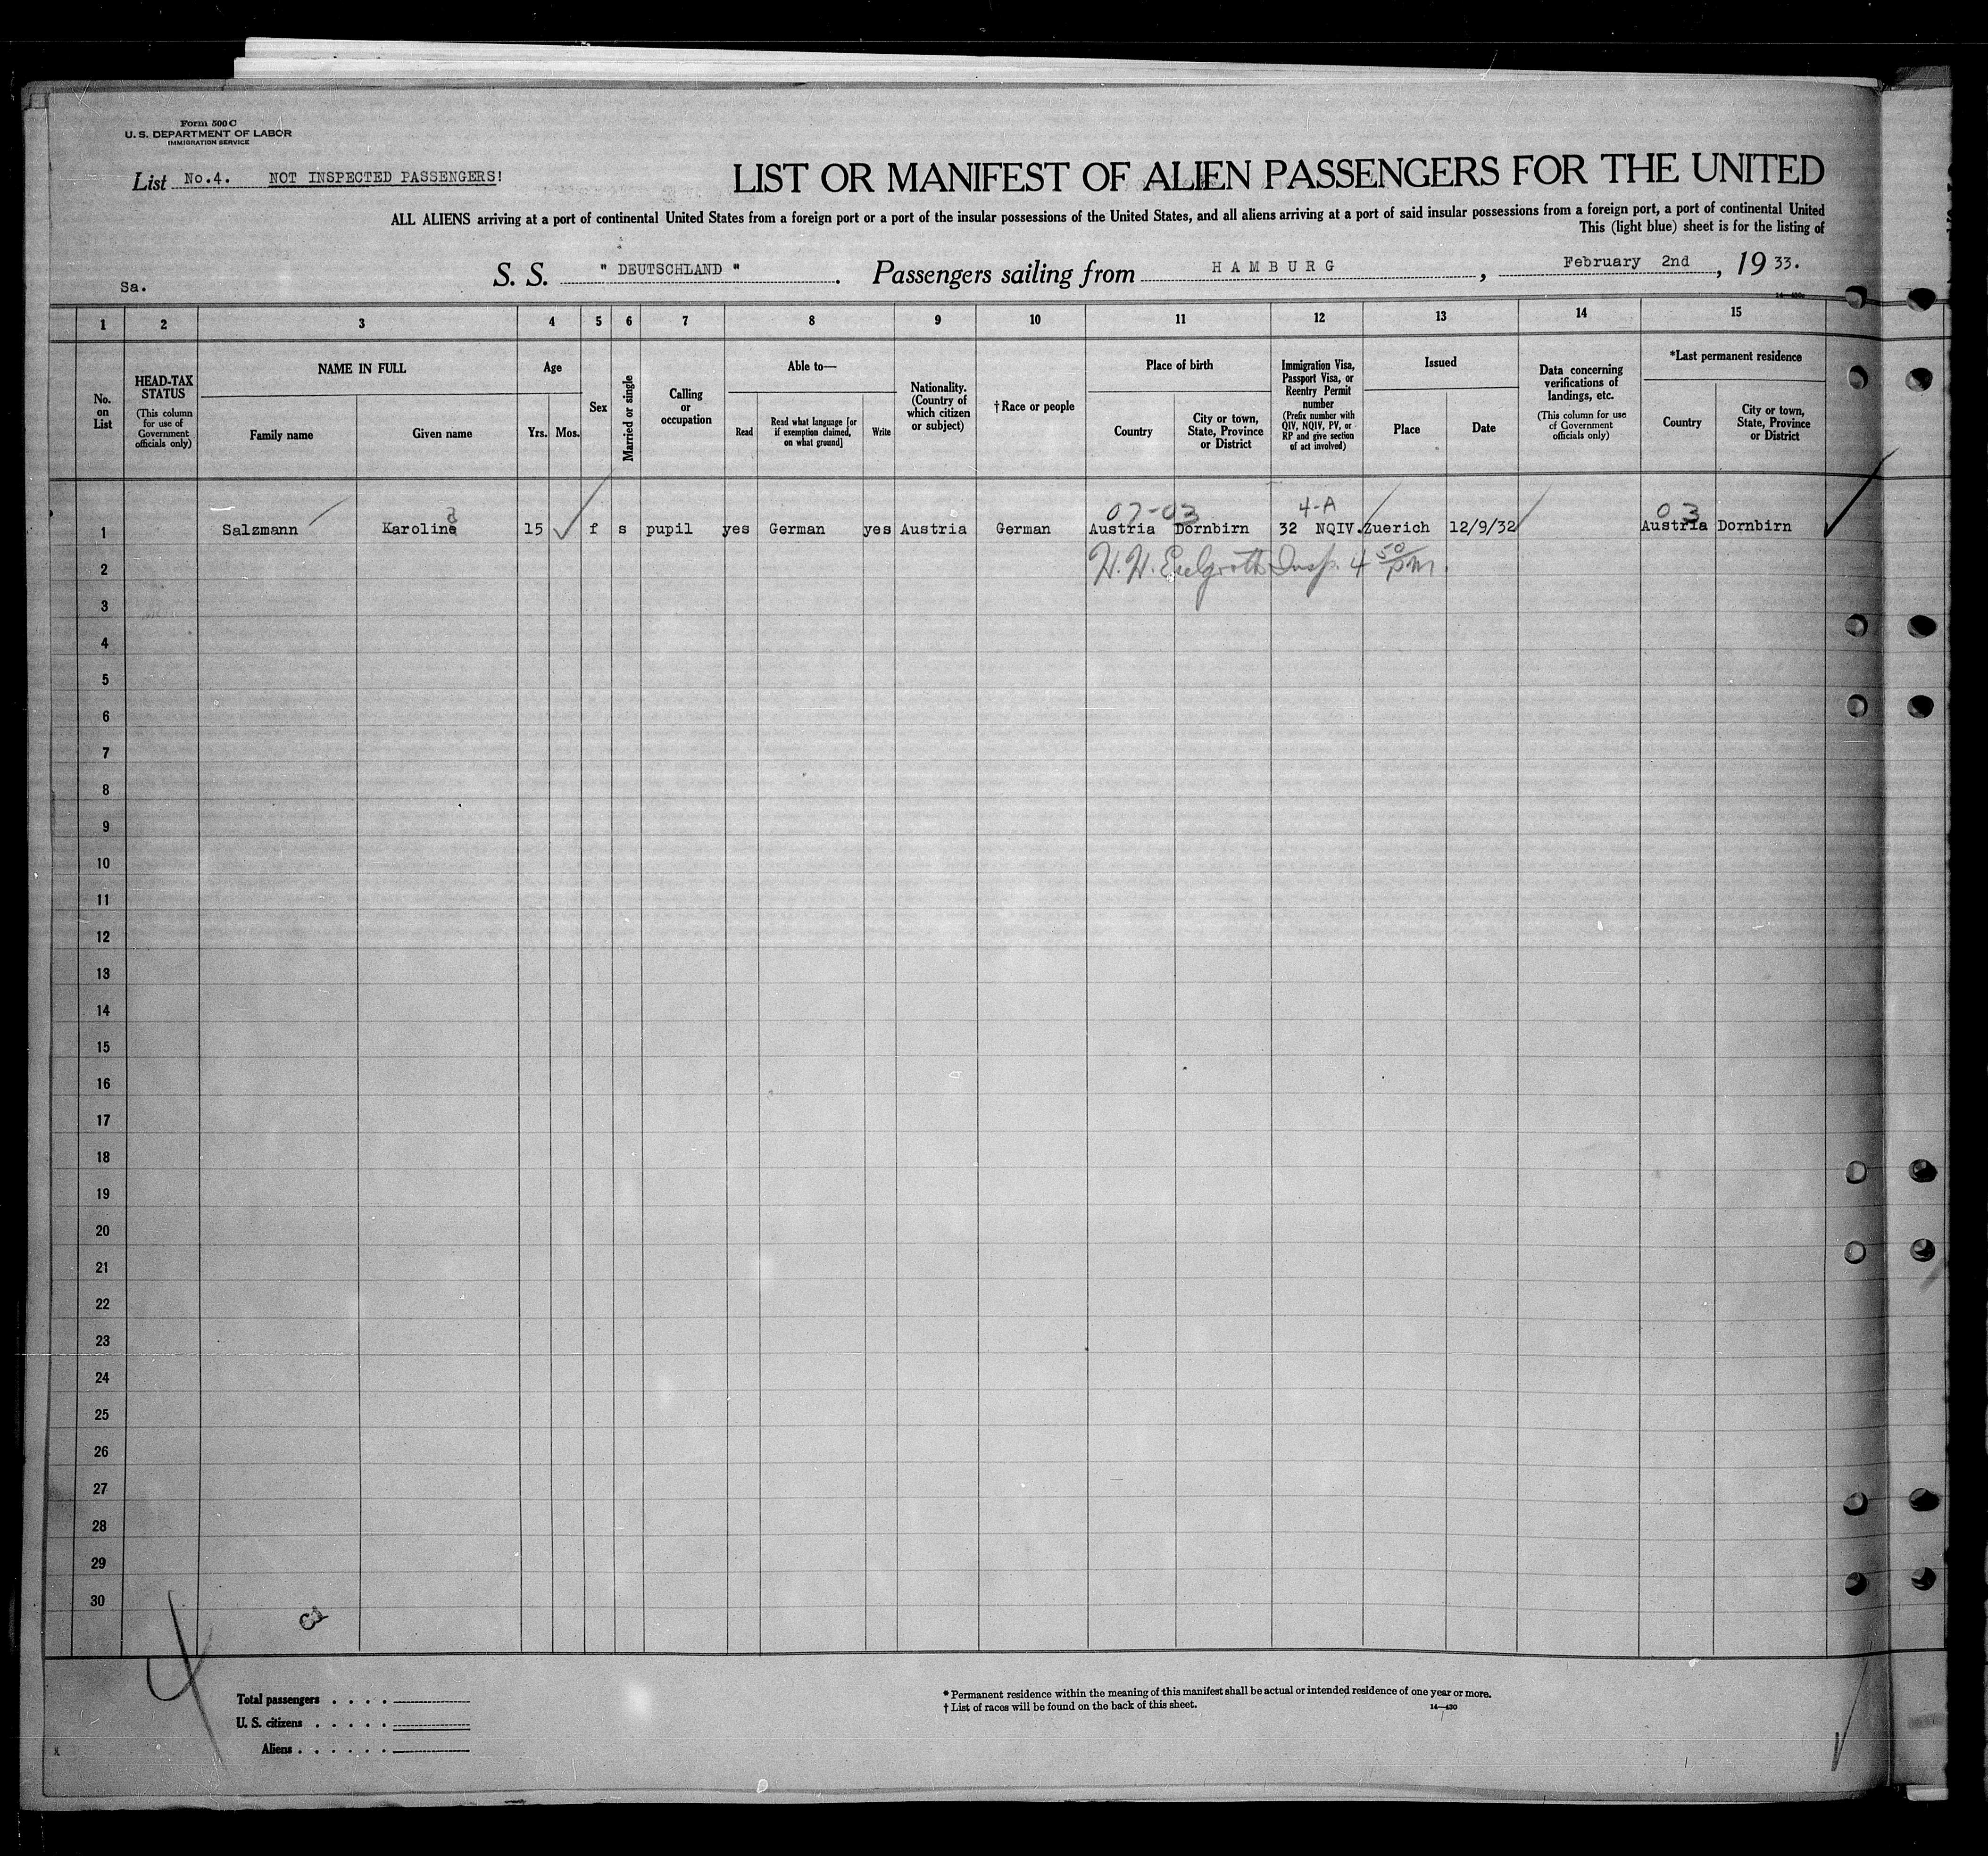 Form 500 C
U. S. DEPARTMENT OF LABOR
IMMIGRATION SERVICE
List No.4. NOT INSPECTED PASSENGERS!
LIST OR MANIFEST OF ALIEN PASSENGERS FOR THE UNITED
ALL ALIENS arriving at a port of continental United States from a foreign port or a port of the insular possessions of the United States, and all aliens arriving at a port of said insular possessions from a foreign port, a port of continental United
This (light blue) sheet is for the listing of
Sa.
S. S. " DEUTSCHLAND ". Passengers sailing from HAMBURG, February 2nd, 1933.
1 2 3 4 5 6 7 8 9 10 11 12 13 14 15
No. on List
HEAD-TAX STATUS
(This column for use of Government officials only)
NAME IN FULL
Family name
Given name
Age
Yrs. Mos.
Sex
Married or single
Calling or occupation
Able to—
Read
Read what language [or if exemption claimed, on what ground]
Write
Nationality. (Country of which citizen or subject)
†Race or people
Place of birth
Country
City or town, State, Province or District
Immigration Visa, Passport Visa, or Reentry Permit number
(Prefix number with QIV, NQIV, PV, or RP and give section of act involved)
Issued
Place
Date
Data concerning verifications of landings, etc.
(This column for use of Government officials only)
*Last permanent residence
Country
City or town, State, Province or District
07-03 4-A 03
1 Salzmann Karoline 15 f s pupil yes German yes Austria German Austria Dornbirn 32 NQIV. Zuerich 12/9/32 Austria Dornbirn
2 H. H. Insp. 4 50/pm.
3
4
5
6
7
8
9
10
11
12
13
14
15
16
17
18
19
20
21
22
23
24
25
26
27
28
29
30
Total passengers . . . .
U. S. citizens . . . . .
Aliens . . . . . .
* Permanent residence within the meaning of this manifest shall be actual or intended residence of one year or more.
† List of races will be found on the back of this sheet.
14—430